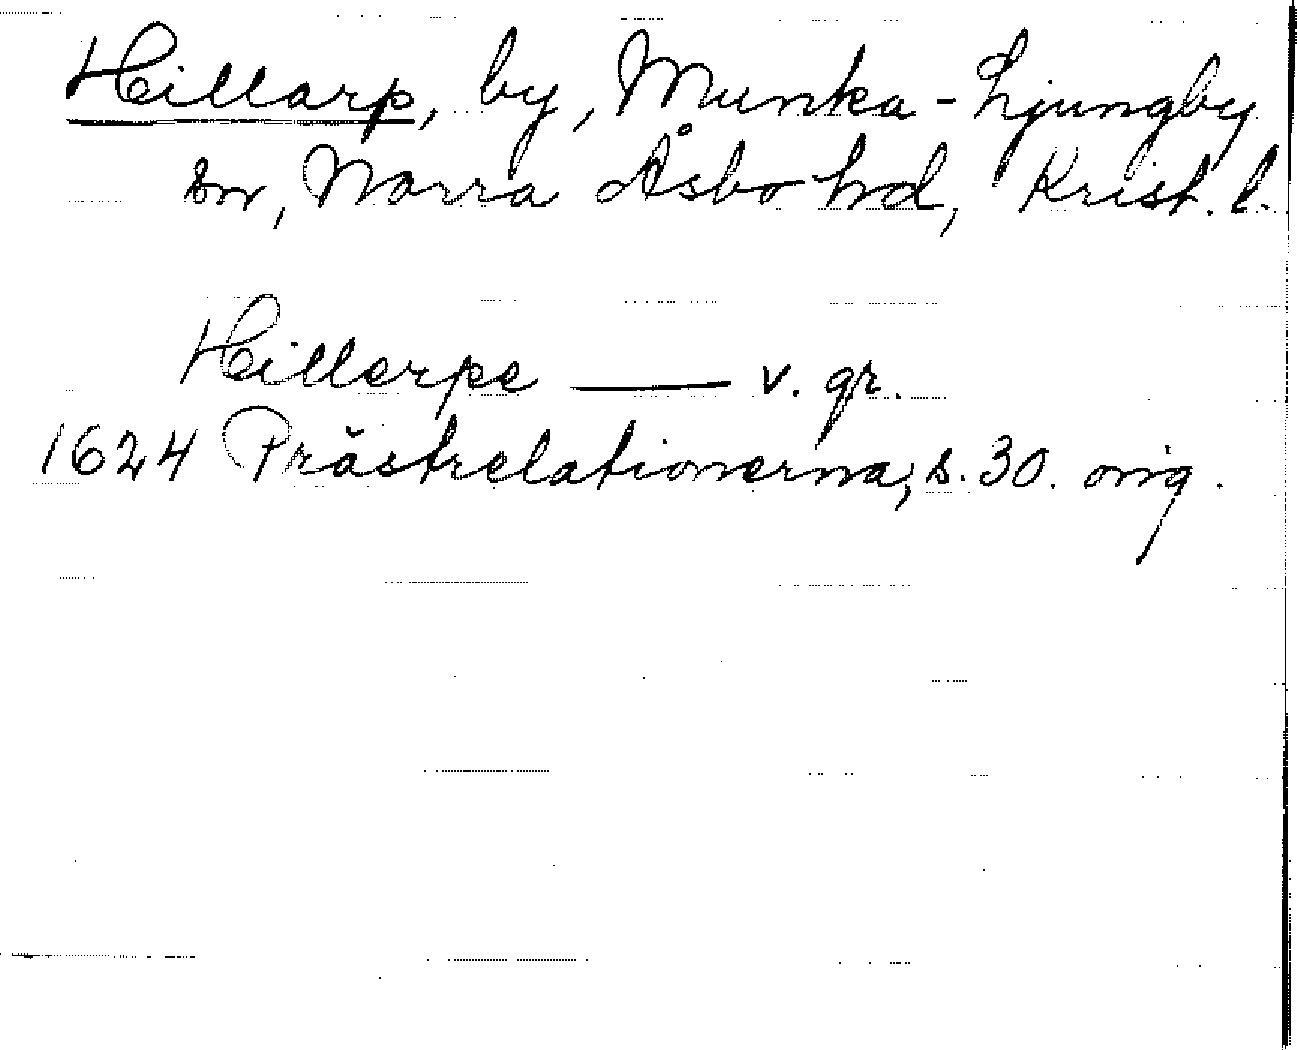 Hillarp, by, Munka-Ljungby
sn, Norra Åsbo hd, Krist. l.
Hillerpe —— v. gr.
1624 Prästrelationerna, s. 30. orig.